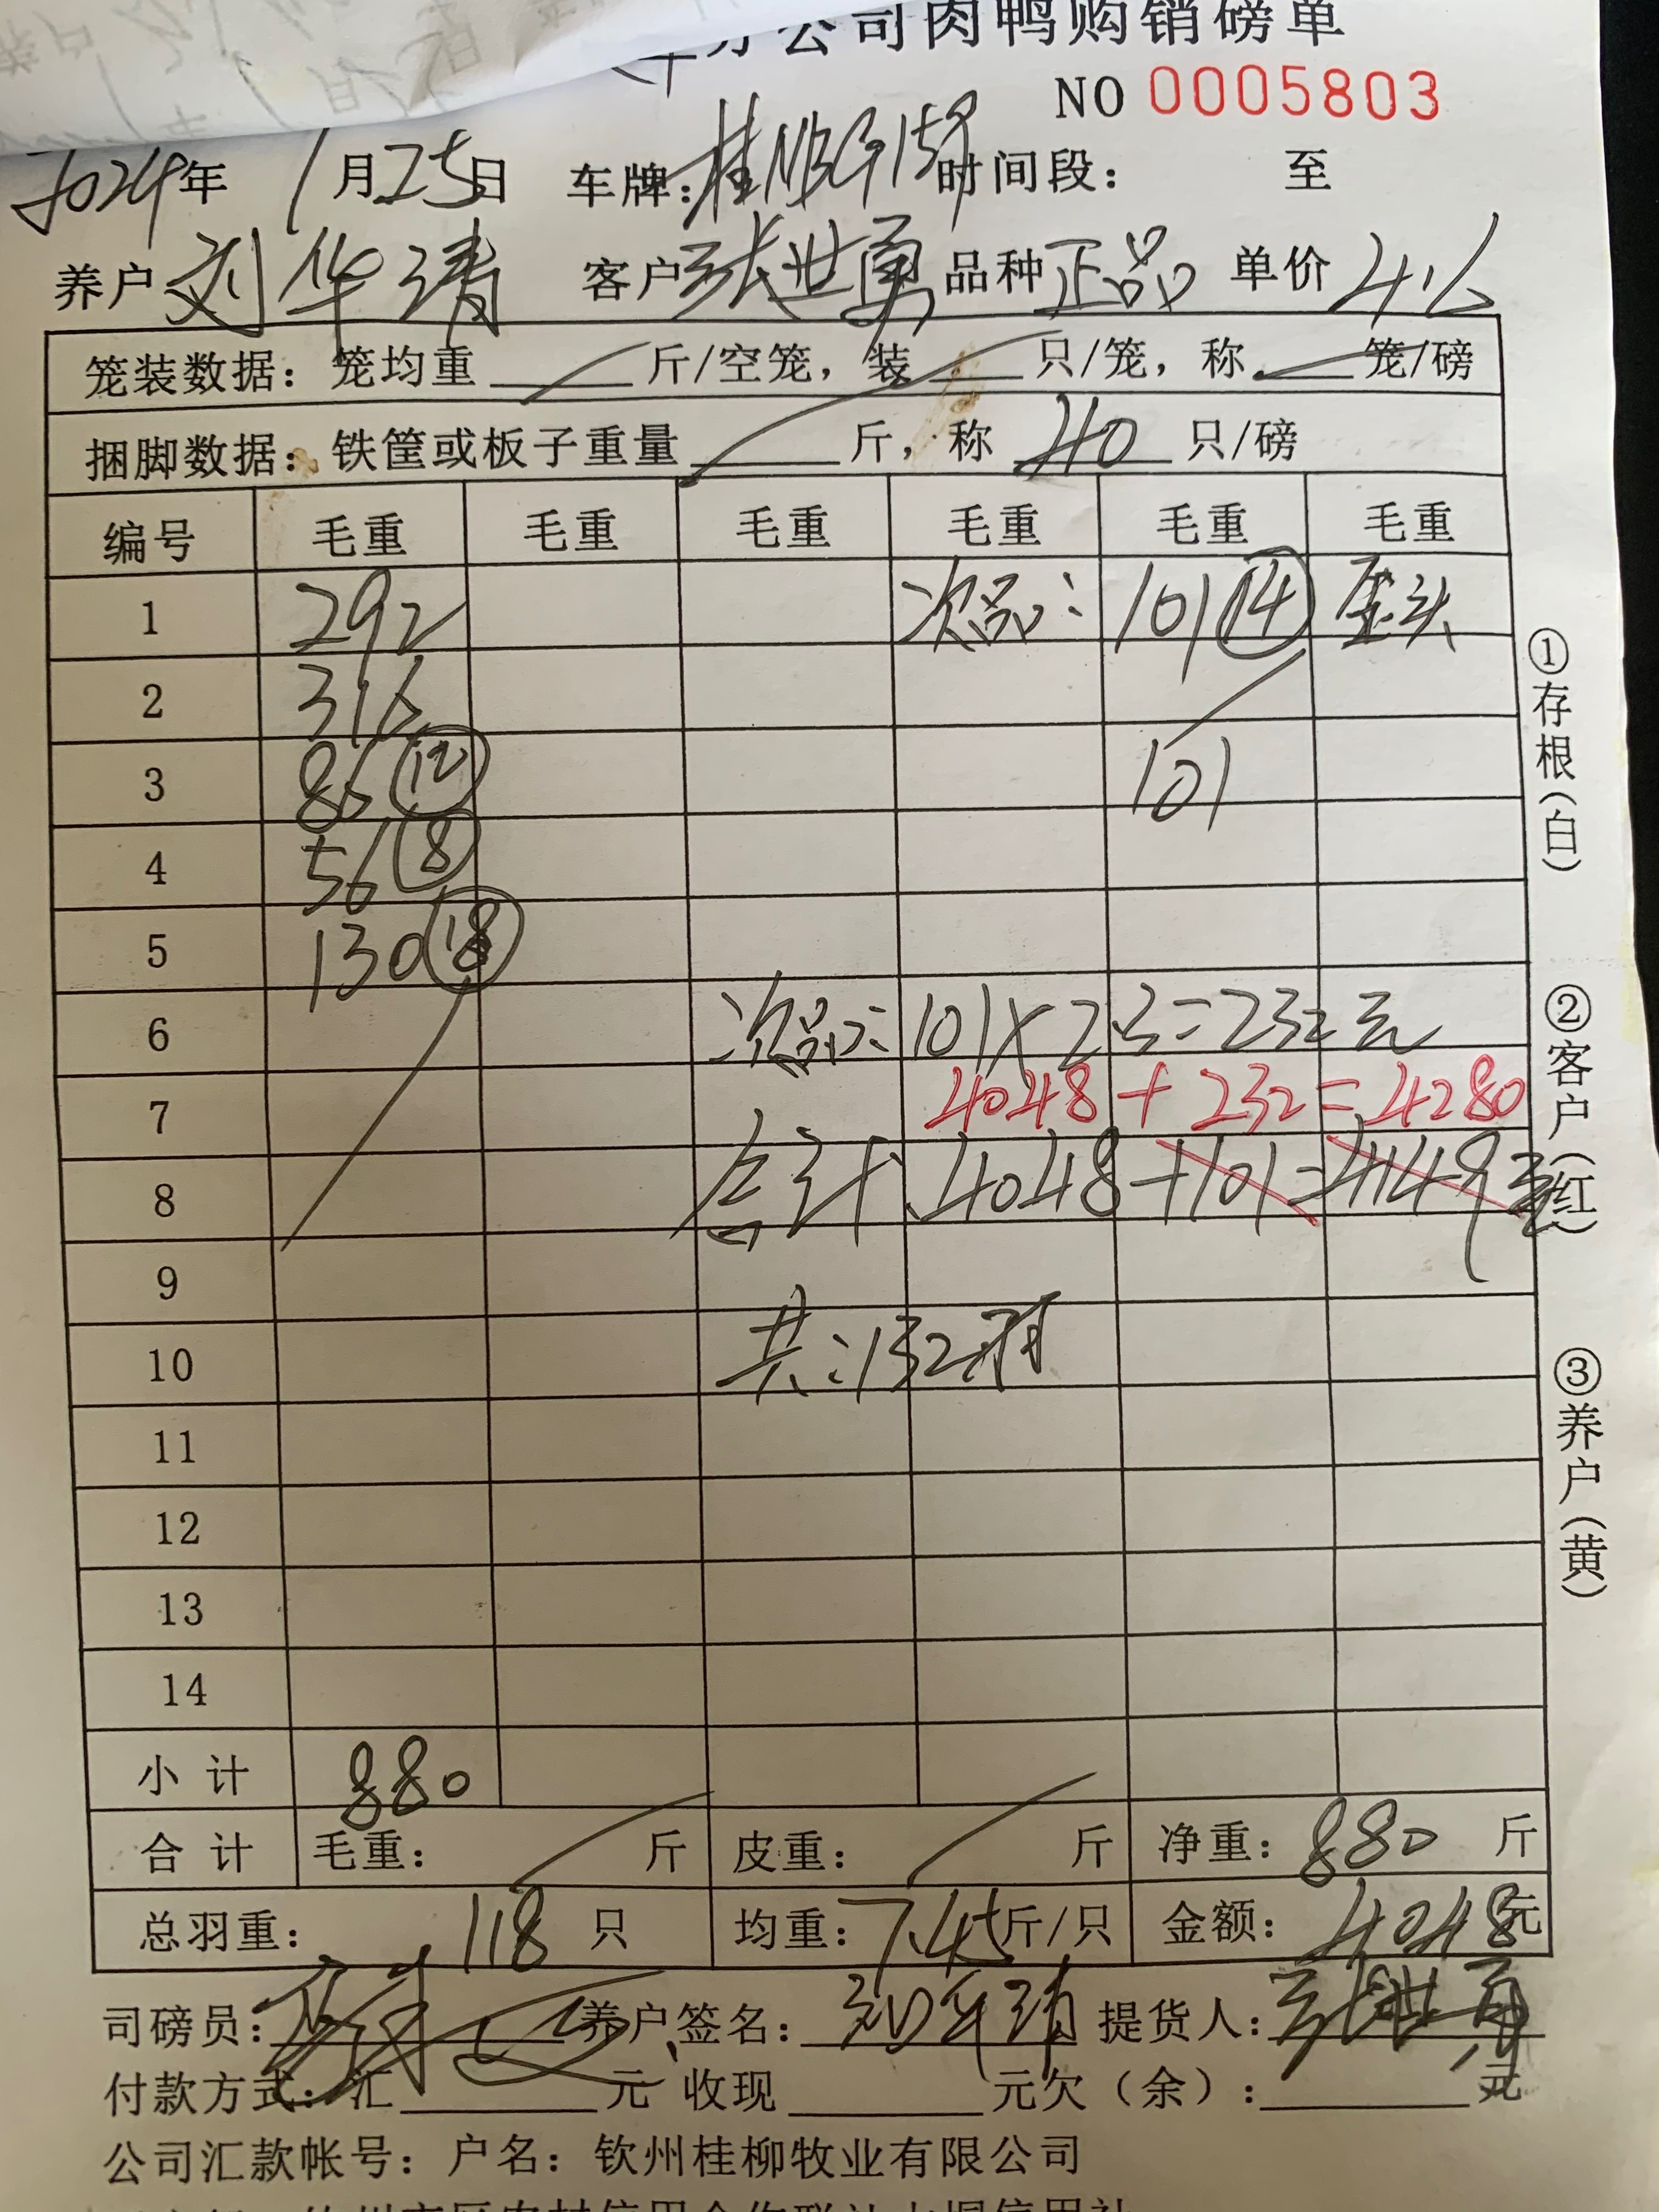 分公司肉鸭购销磅单
NO 0005803
2024年 1月25日 车牌: 时间段: 至
养户 刘华清 客户 张世勇 品种 正品 单价 4.6
笼装数据: 笼均重 斤/空笼, 装 只/笼, 称 笼/磅
捆脚数据: 铁筐或板子重量 斤, 称 40 只/磅
编号 毛重 毛重 毛重 毛重 毛重 毛重
1 292 次品: 101 14
2 316
3 86 12 101
4 56 8
5 130 18
6 次品: 101×2.3=232元
7 4048+232=4280
8 合计: 4048+101=4149元
9
10 共:132羽
11
12
13
14
小计 880
合计 毛重: 斤 皮重: 斤 净重: 880 斤
总羽重: 118 只 均重: 7.45 斤/只 金额: 4048元
司磅员: 养户签名: 刘华清 提货人: 张世勇
付款方式: 汇 元 收现 元 欠(余): 元
公司汇款帐号: 户名: 钦州桂柳牧业有限公司
①存根(白)
②客户(红)
③养户(黄)